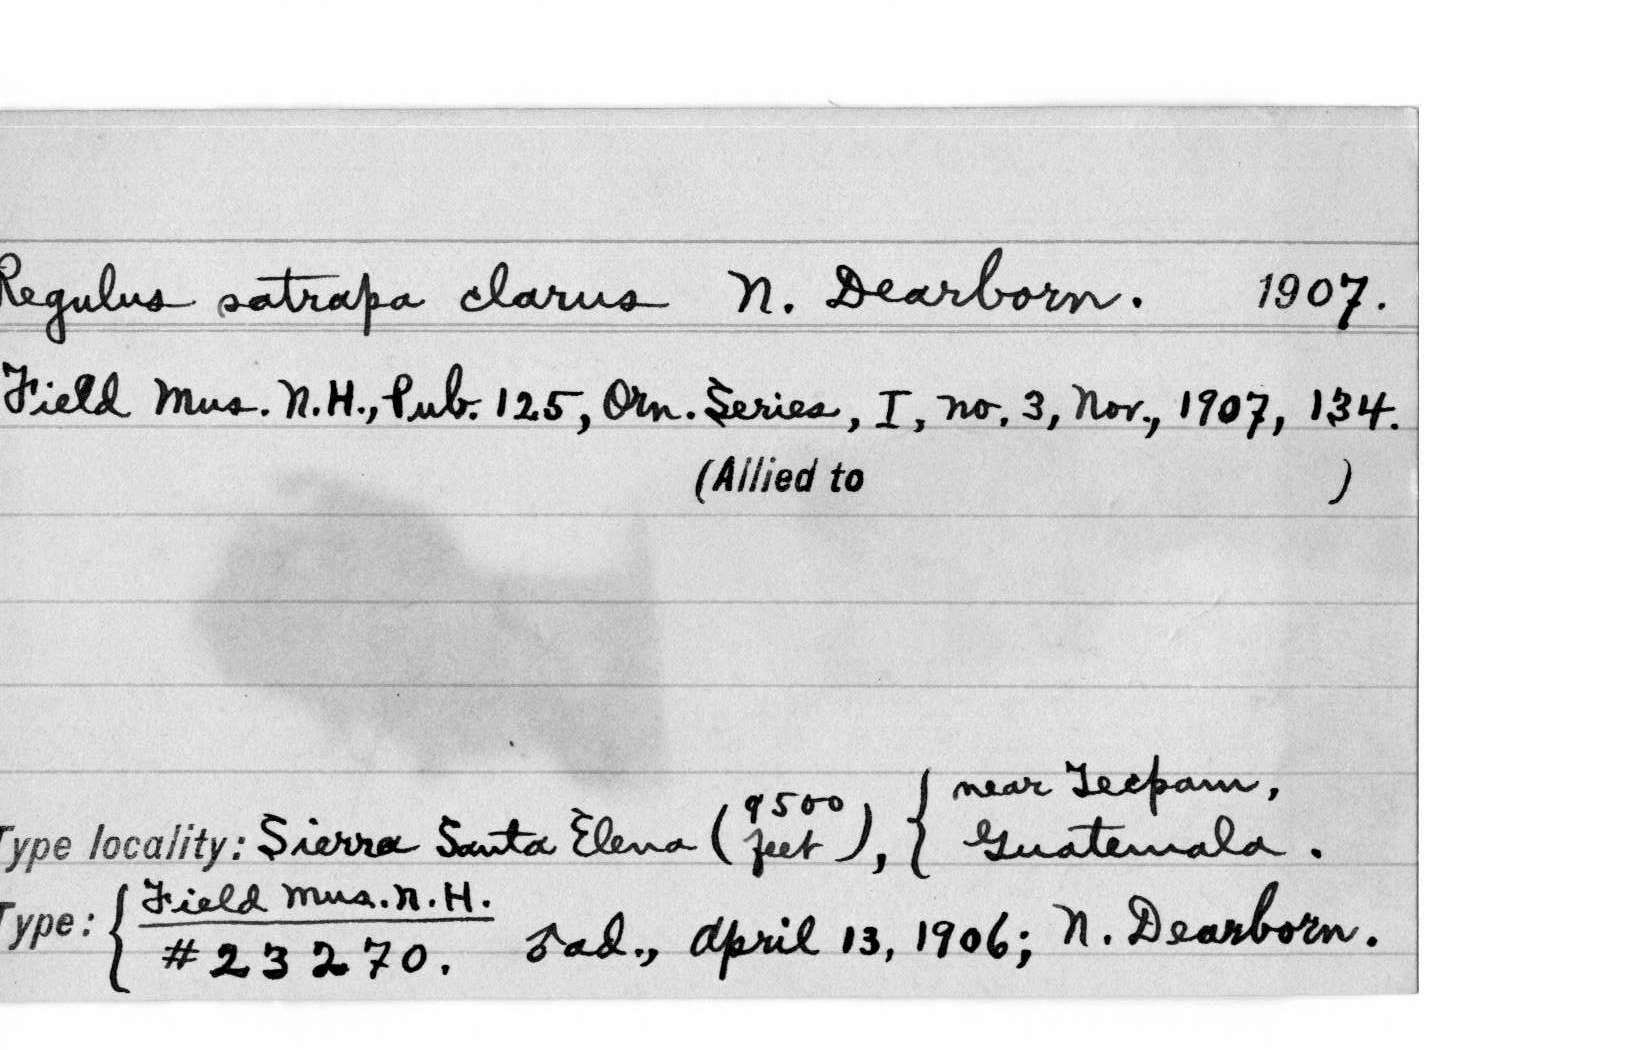 Regulus satrapa clarus N. Dearborn. 1907.
Field Mus. N.H., Pub. 125, Orn. Series, I, no. 3, Nov., 1907, 134.
(Allied to )
Type locality: Sierra Santa Elena (9500 feet), { near Tecpam, Guatemala.
Type: { Field Mus. N.H. #23270. ♂ ad., April 13, 1906; N. Dearborn.